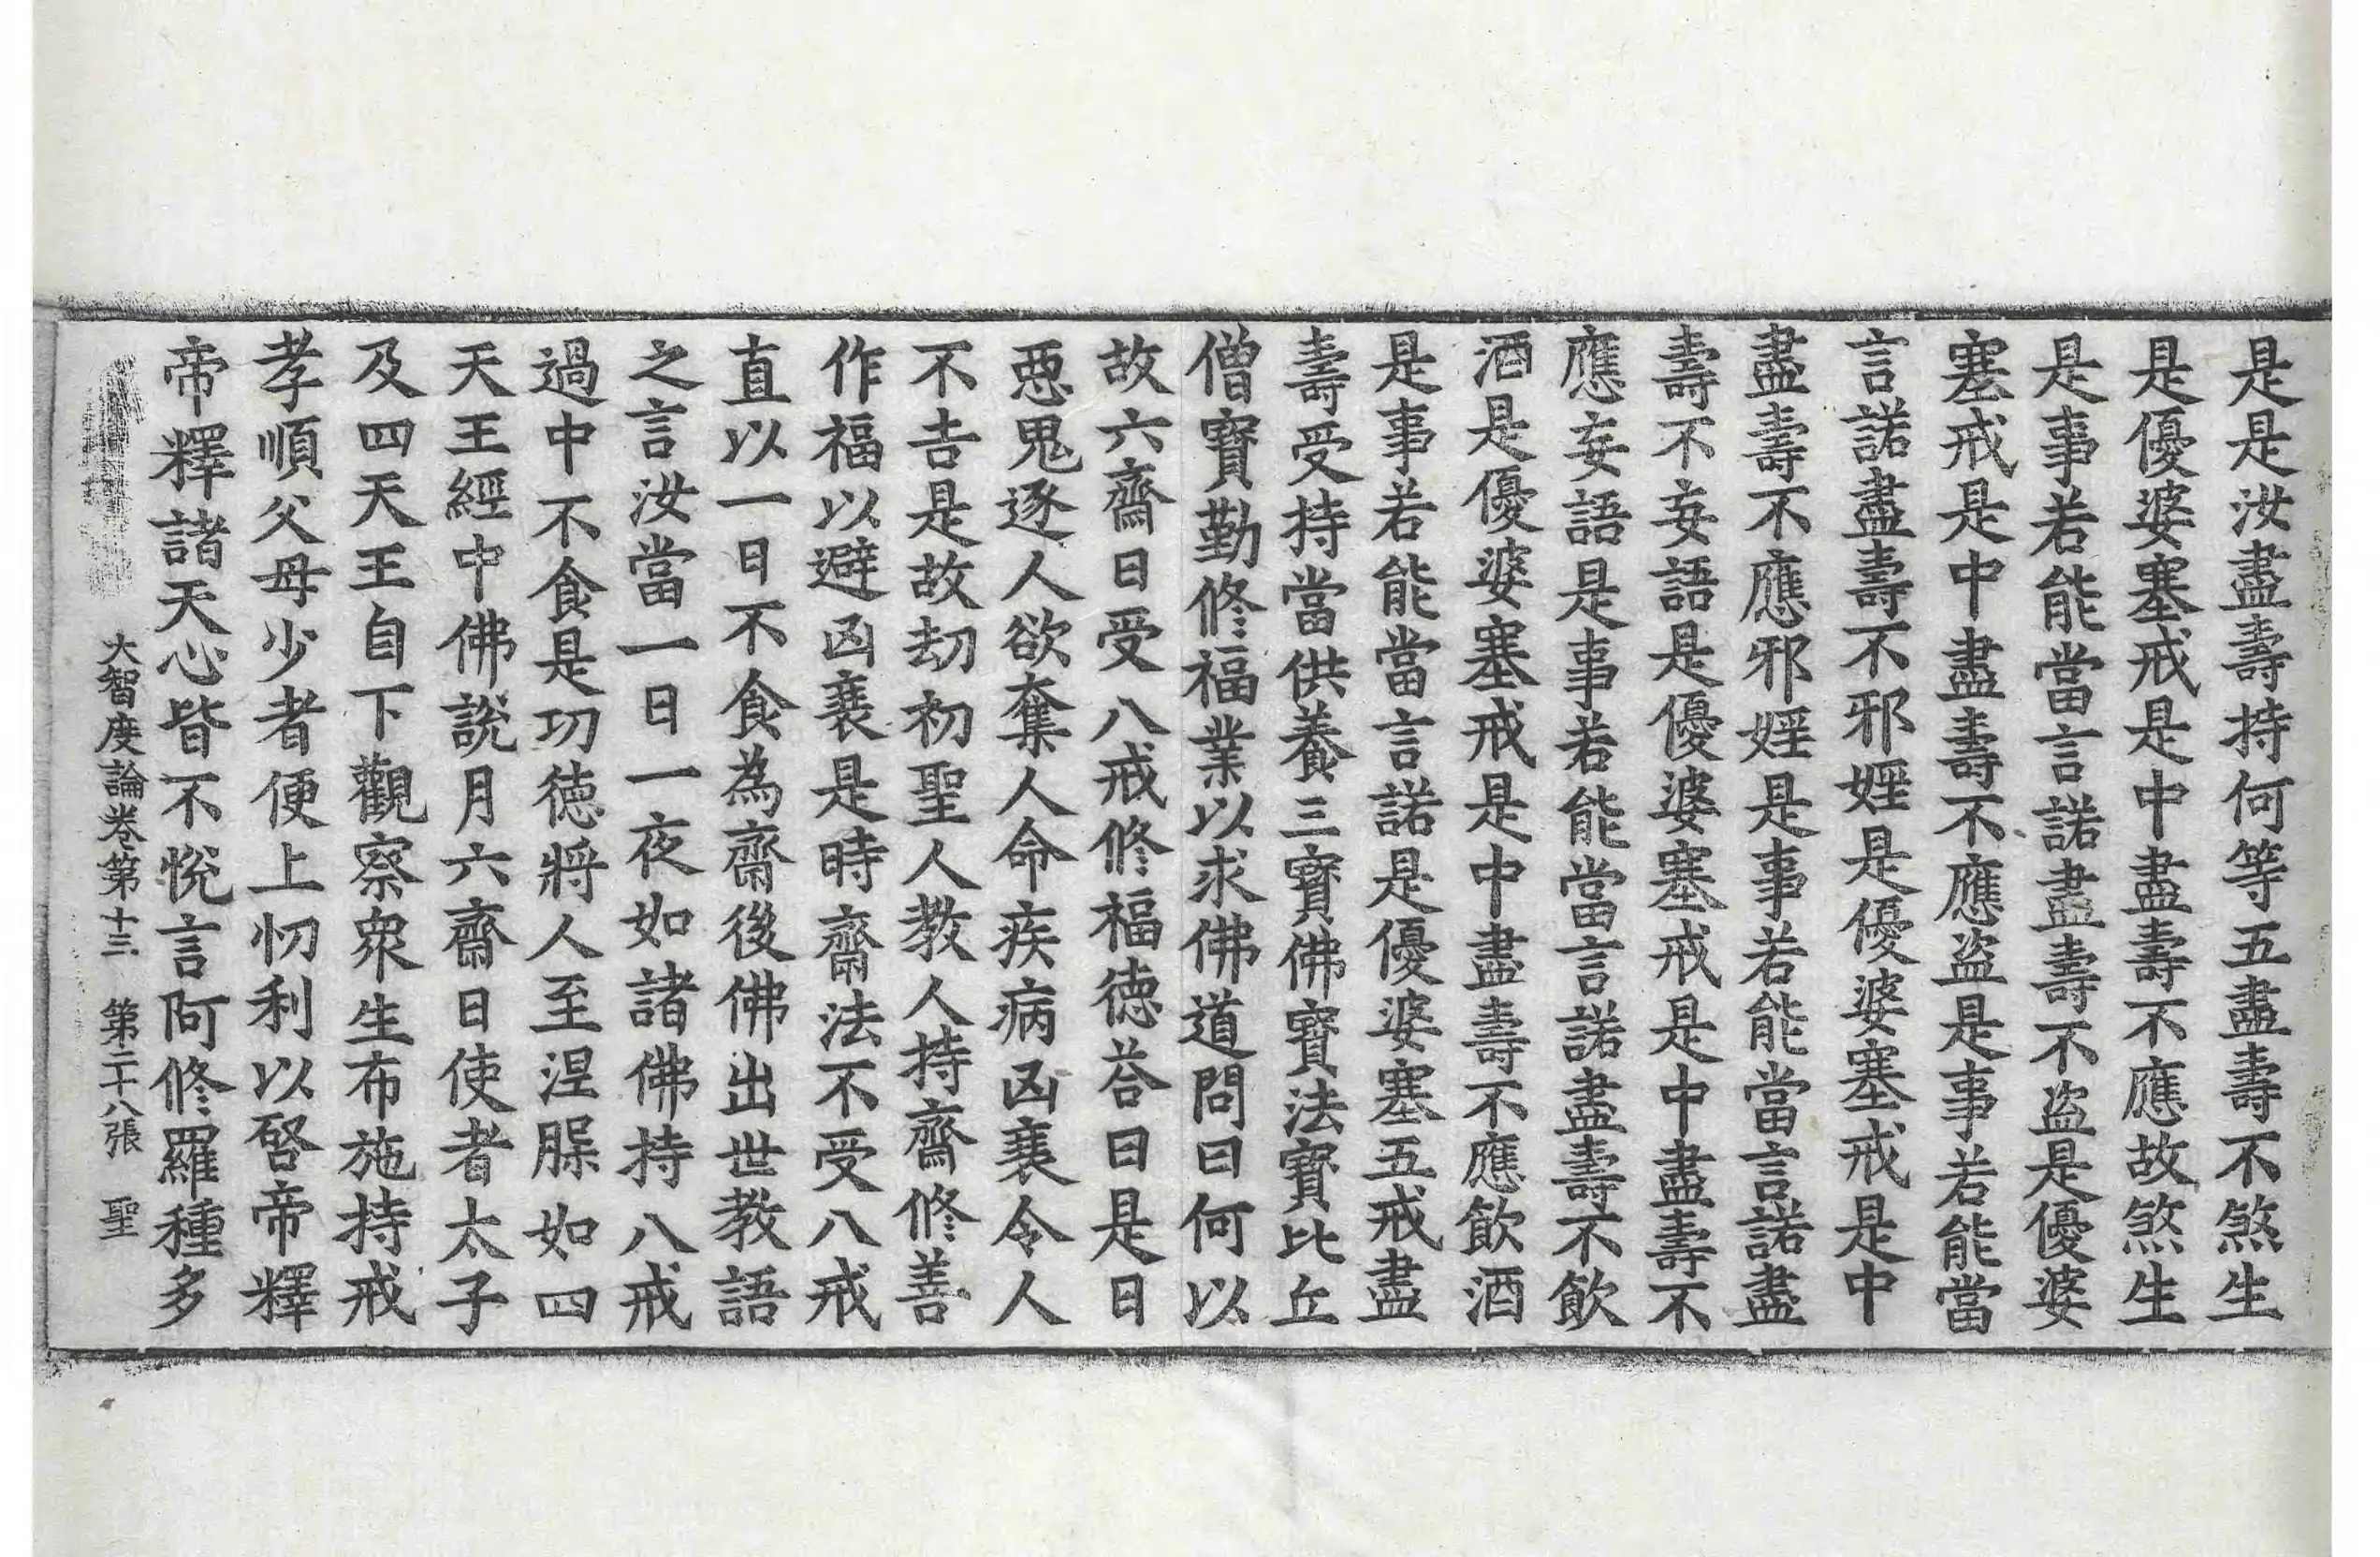 是是汝盡壽持何等五盡壽不煞生
是優婆塞戒是中盡壽不應故煞生
是事若能當言諾盡壽不盜是優婆
塞戒是中盡壽不應盜是事若能當
言諾盡壽不邪婬是優婆塞戒是中
盡壽不應邪婬是事若能當言諾盡
壽不妄語是優婆塞戒是中盡壽不
應妄語是事若能當言諾盡壽不飲
酒是優婆塞戒是中盡壽不應飲酒
是事若能當言諾是優婆塞五戒盡
壽受持當供養三寶佛寶法寶比丘
僧寶勤修福業以求佛道問曰何以
故六齋日受八戒修福德荅曰是日
惡鬼逐人欲奪人命疾病凶衰令人
不吉是故劫初聖人教人持齋修善
作福以避凶衰是時齋法不受八戒
直以一日不食為齋後佛出世教語
之言汝當一日一夜如諸佛持八戒
過中不食是功德將人至涅槃如四
天王經中佛說月六齋日使者太子
及四天王自下觀察衆生布施持戒
孝順父母少者便上忉利以啓帝釋
帝釋諸天心皆不悅言阿修羅種多
大智度論卷第十三　第二十八張　聖